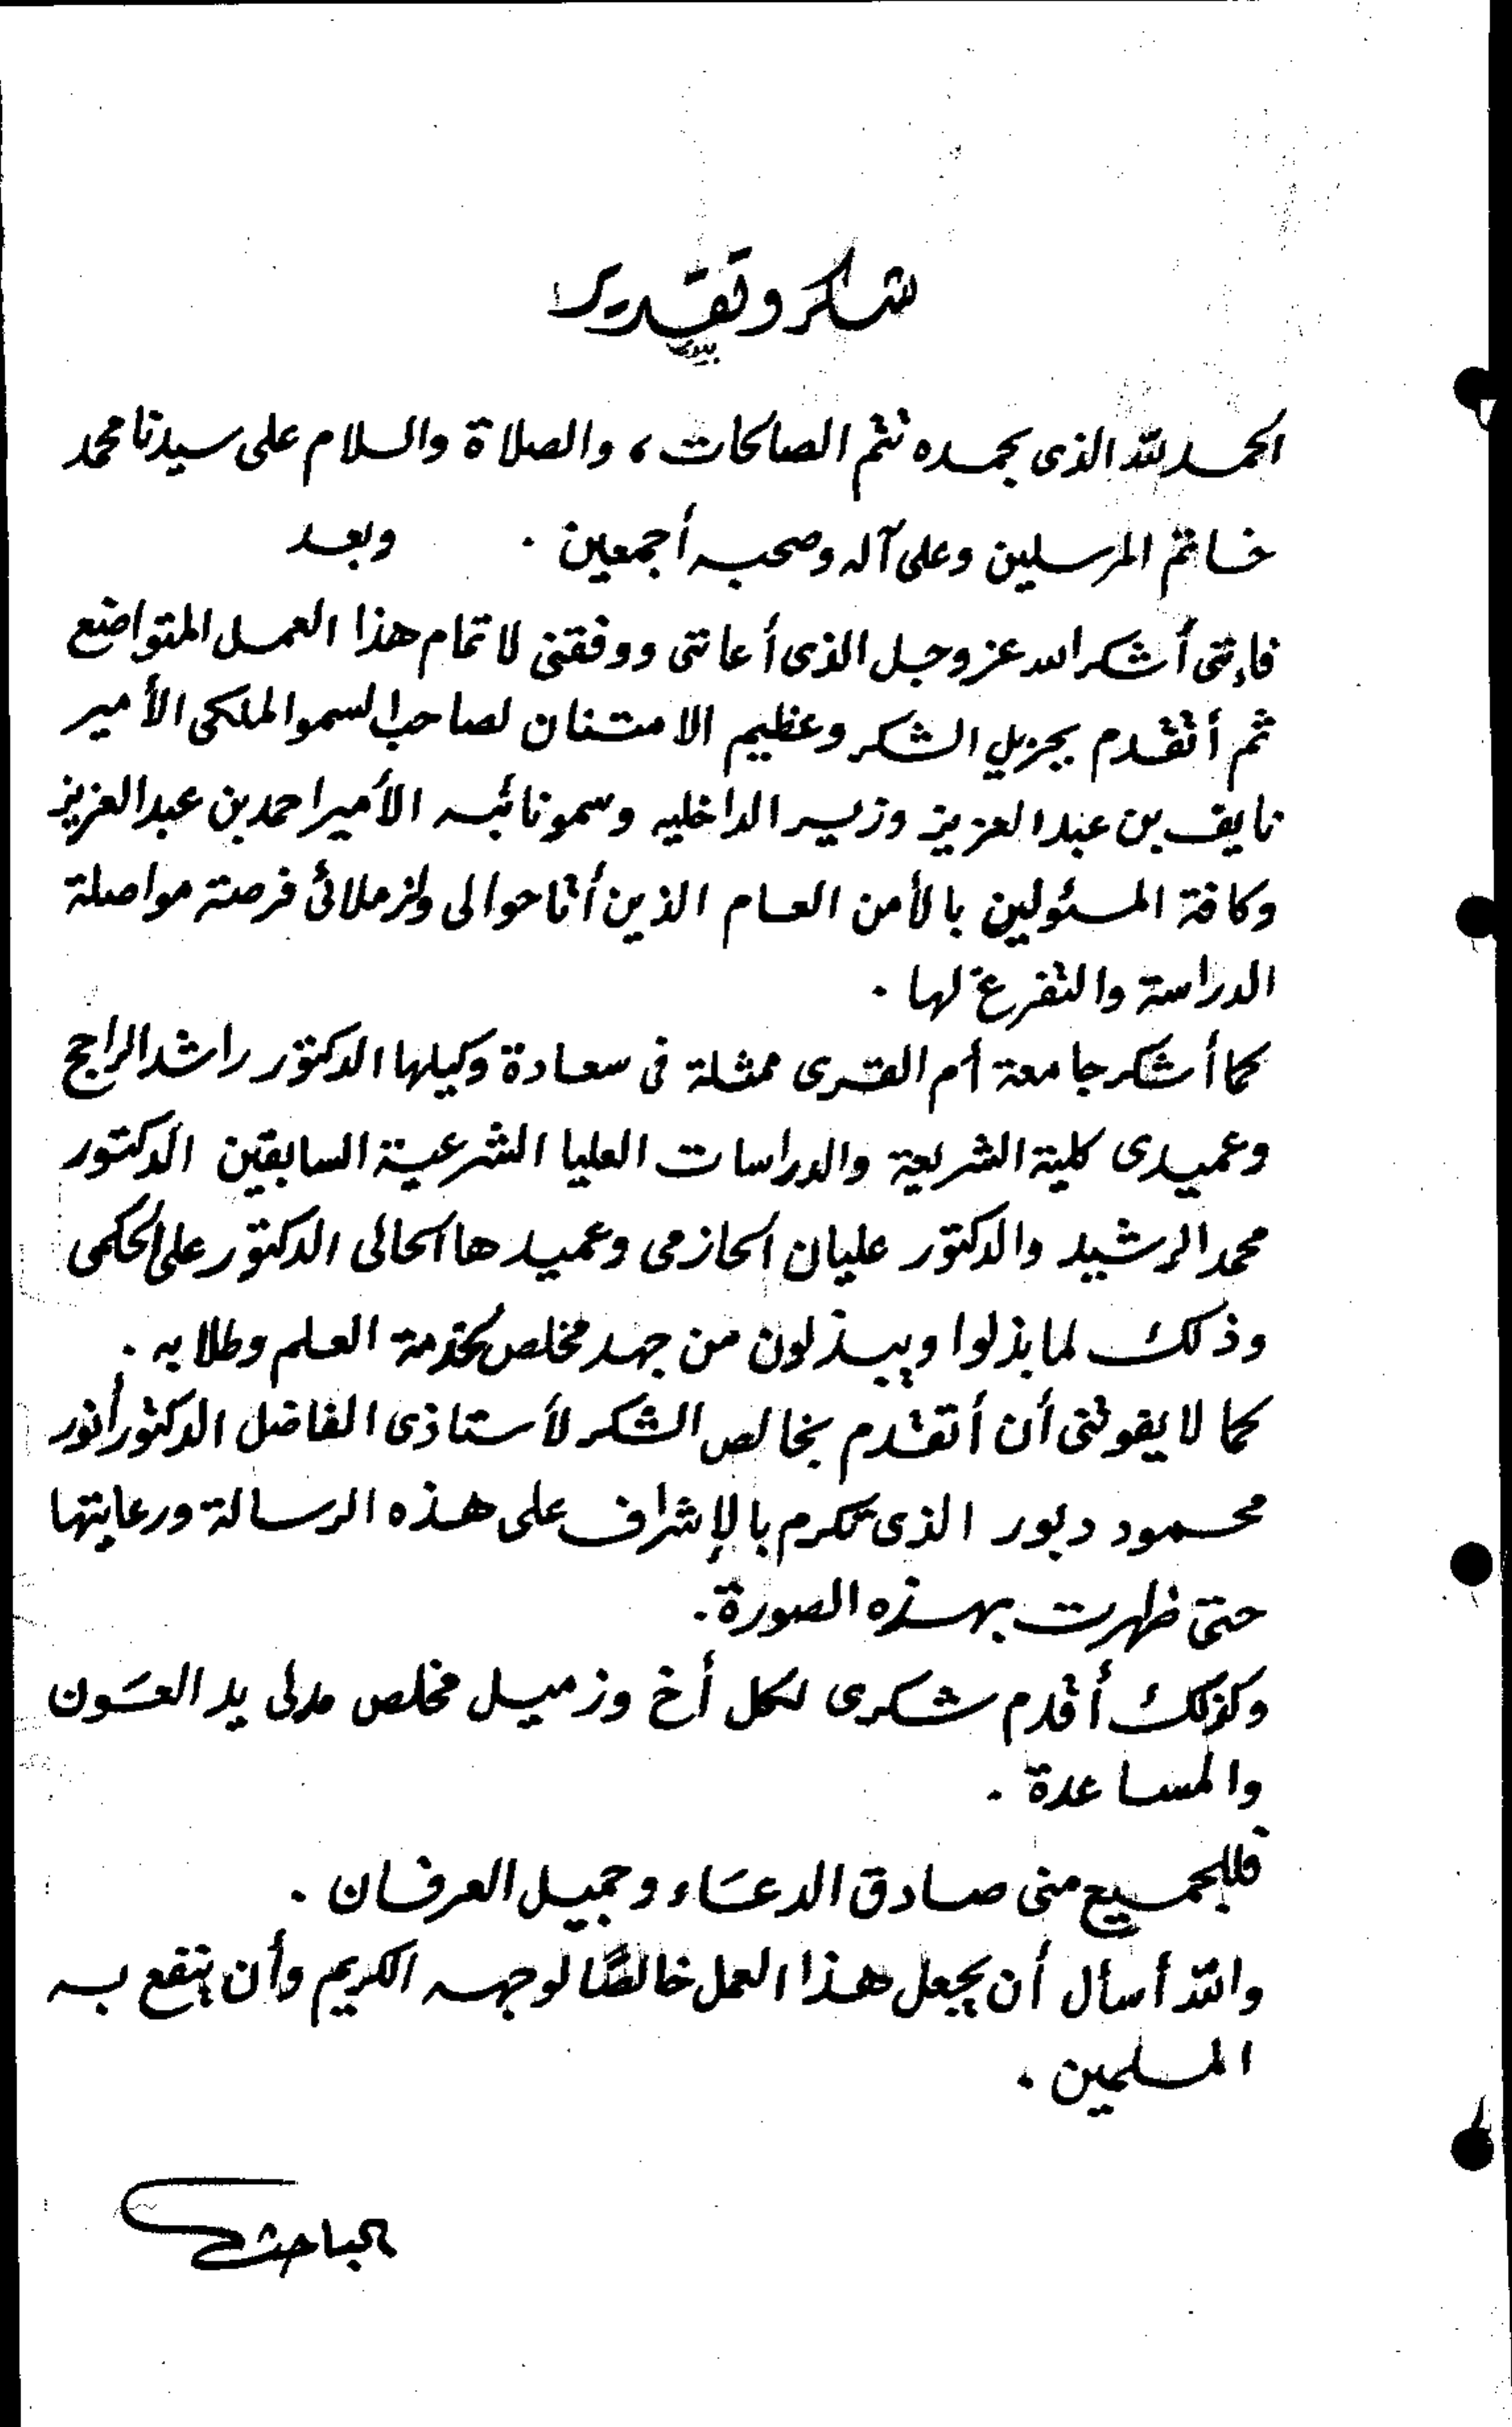 شكر وتقدير
الحمد لله الذى بحمده تتم الصالحات، والصلاة والسلام على سيدنا محمد
خاتم المرسلين وعلى آله وصحبه أجمعين . وبعد
فإننى أشكر الله عز وجل الذى أعاننى ووفقنى لاتمام هذا العمل المتواضع
ثم أتقدم بجزيل الشكر وعظيم الامتنان لصاحب السمو الملكى الأمير
نايف بن عبد العزيز وزير الداخليه وسمو نائبه الأمير احمد بن عبد العزيز
وكافة المسئولين بالأمن العام الذين أتاحوا لى ولزملائى فرصة مواصلة
الدراسة والتفرغ لها .
كما أشكر جامعة أم القرى ممثلة فى سعادة وكيلها الدكتور راشد الراجح
وعميدى كلية الشريعة والدراسات العليا الشرعية السابقين الدكتور
محمد الرشيد والدكتور عليان الحازمى وعميدها الحالى الدكتور على الحكمى
وذلك لما بذلوا ويبذلون من جهد مخلص لخدمة العلم وطلابه .
كما لا يفوتنى أن أتقدم بخالص الشكر لأستاذى الفاضل الدكتور أنور
محمود دبور الذى تكرم بالإشراف على هذه الرسالة ورعايتها
حتى ظهرت بهذه الصورة .
وكذلك أقدم شكرى لكل أخ وزميل مخلص مد لى يد العون
والمساعدة .
فللجميع منى صادق الدعاء وجميل العرفان .
والله أسأل أن يجعل هذا العمل خالصًا لوجهه الكريم وأن ينفع به
المسلمين .
الباحث